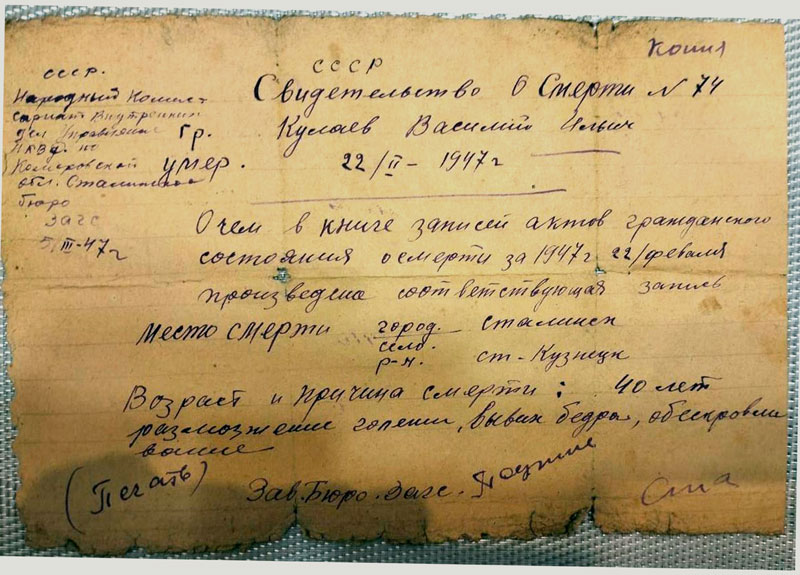 Копия
СССР.
Народный Комисс
сариат Внутренних
дел Управление
НКВД. по
Кемеровской
обл. Сталинское
бюро
ЗАГС
5/III-47г
СССР
Свидетельство о Смерти N 74
Гр. Кулаев Василий Ильич
умер. 22/II - 1947г
О чем в книге записей актов гражданского
состояния о смерти за 1947г 22/февраля
произведена соответствующая запись
Место смерти город. Сталинск
село.
р-н. ст-Кузнецк
Возраст и причина смерти: 40 лет
размозжение голени, вывих бедра, обескровли
вание
(Печать) Зав. Бюро. Загс.